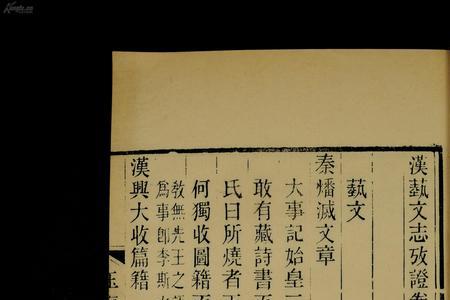 漢藝文志攷證卷
藝文
秦燔滅文章
大事記始皇三
敢有藏詩書百
氏曰所燒者天
何獨收圖籍而
敎無先王之語
爲事卽李斯
漢興大收篇籍
玉